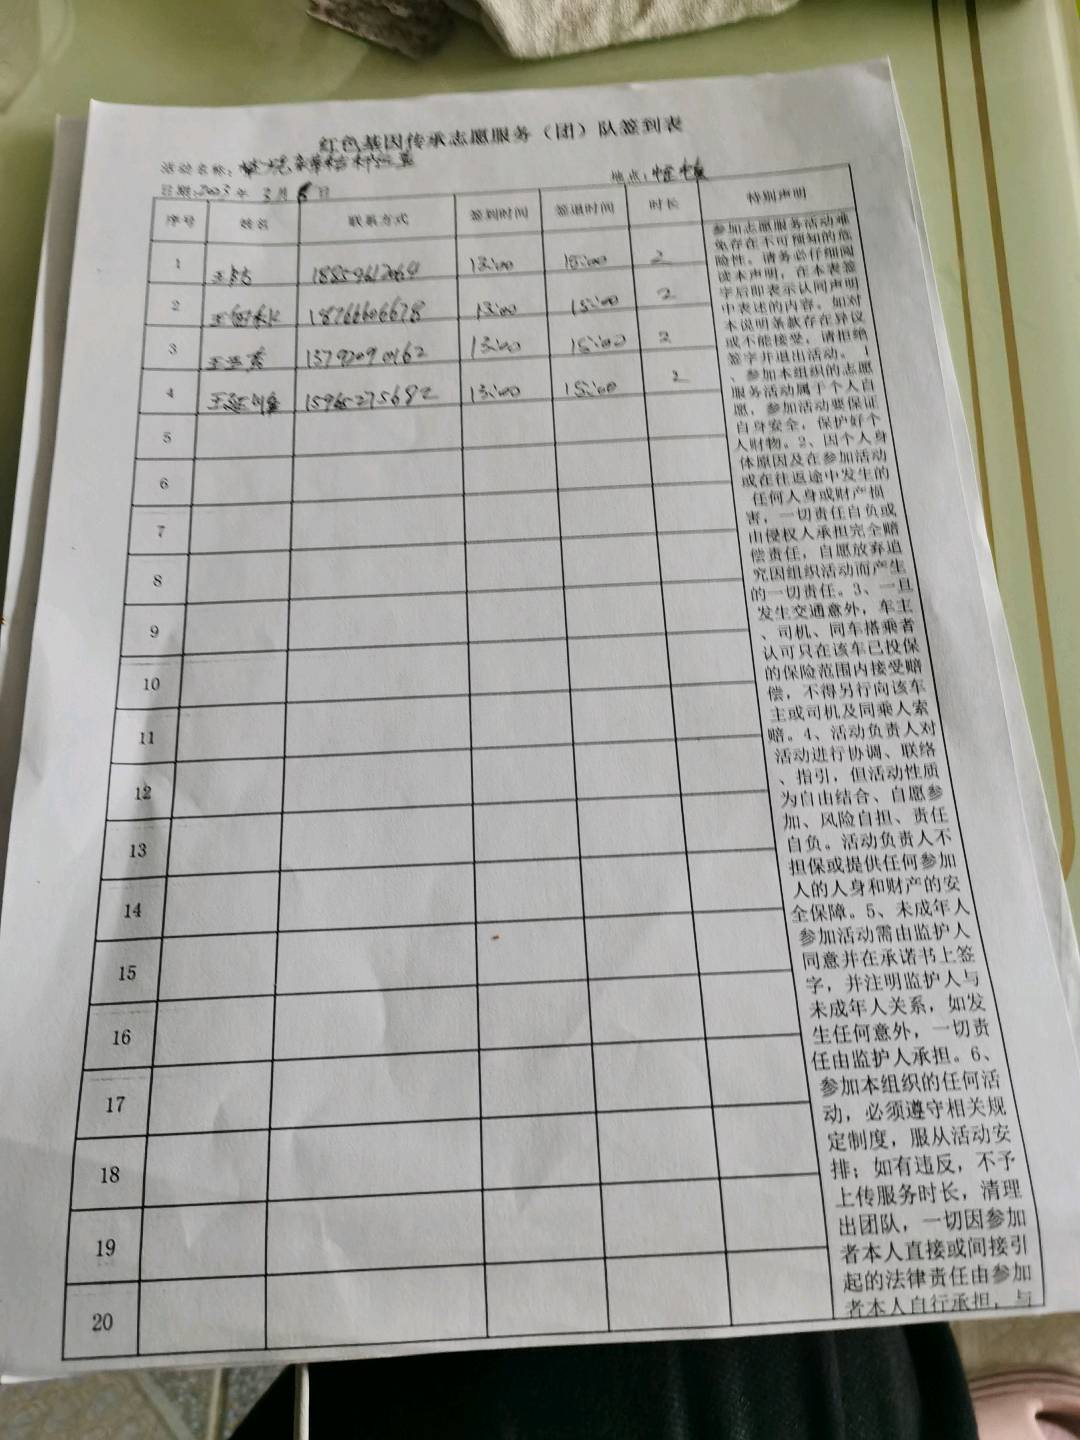 红色基因传承志愿服务（团）队签到表
活动名称：
日期：2023年 3月 日 地点：
序号 姓名 联系方式 签到时间 签退时间 时长 特别声明
1 13:00 15:00 2
2 18766606678 13:00 15:00 2
3 13792090162 13:00 15:00 2
4 15965275682 13:00 15:00 2
5
6
7
8
9
10
11
12
13
14
15
16
17
18
19
20
参加志愿服务活动难
免存在不可预知的危
险性。请务必仔细阅
读本声明，在本表签
字后即表示认同声明
中表述的内容。如对
本说明条款存在异议
或不能接受，请拒绝
签字并退出活动。1
、参加本组织的志愿
服务活动属于个人自
愿，参加活动要保证
自身安全，保护好个
人财物。2、因个人身
体原因及在参加活动
或在往返途中发生的
任何人身或财产损
害，一切责任自负或
由侵权人承担完全赔
偿责任，自愿放弃追
究因组织活动而产生
的一切责任。3、一旦
发生交通意外，车主
、司机、同车搭乘者
认可只在该车已投保
的保险范围内接受赔
偿，不得另行向该车
主或司机及同乘人索
赔。4、活动负责人对
活动进行协调、联络
、指引，但活动性质
为自由结合、自愿参
加、风险自担、责任
自负。活动负责人不
担保或提供任何参加
人的人身和财产的安
全保障。5、未成年人
参加活动需由监护人
同意并在承诺书上签
字，并注明监护人与
未成年人关系，如发
生任何意外，一切责
任由监护人承担。6、
参加本组织的任何活
动，必须遵守相关规
定制度，服从活动安
排；如有违反，不予
上传服务时长，清理
出团队，一切因参加
者本人直接或间接引
起的法律责任由参加
者本人自行承担，与